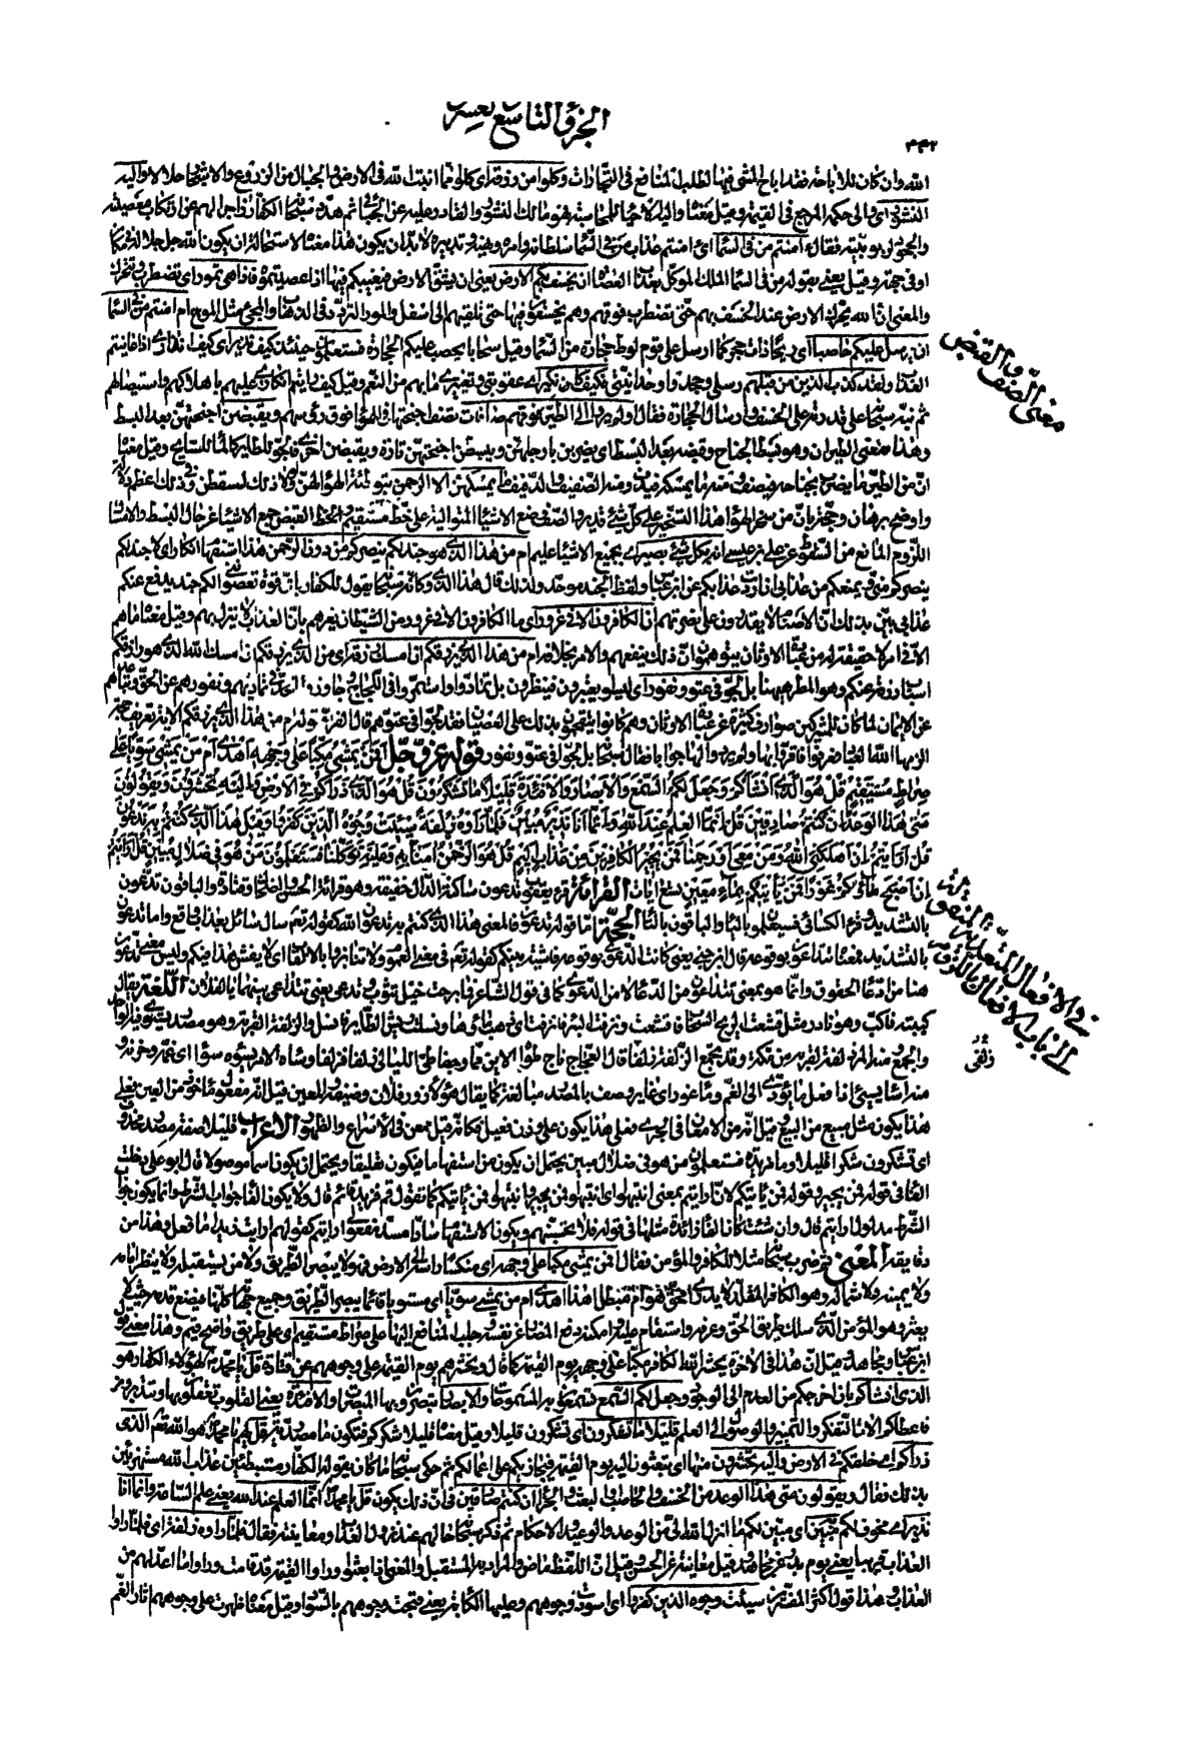 الجزؤ التاسع لعشر
٤٤٢
الله وان كان للاباحة فقد اباح المشي فيها لطلب المنافع في التجارات وكلوا من رزقه اي كلوا مما انبت الله في الارض والجبال من الزروع والاشجار حلالا واليه
النشور اي والى حكمه المرجع في القيمة وقيل معناه واليه الاحياء للمحاسبة فهو مالك النشور والقادر عليه عن الجبائي ثم هدد سبحانه الكفار زاجرا لهم عن ارتكاب معصيته
والجحود لربوبيته فقال ءامنتم من في السماء اي امنتم عذاب من في السماء سلطانه وامره ونهيه وتدبيره لا بد ان يكون هذا معناه لاستحالة ان يكون الله جل جلاله في مكان
او في جهة وقيل يعني بقوله من في السماء الملك الموكل بعذاب العصاة ان يخسف بكم الارض يعني ان يشق الارض فيغيبكم فيها اذا عصيتموه فاذا هي تمور اي تضطرب وتتحرك
والمعنى ان الله يحرك الارض عند الخسف بهم حتى تضطرب فوقهم وهم يخسفون فيها حتى تلقيهم الى اسفل والمور التردد في الذهاب والمجئ مثل الموج ام امنتم من في السماء
ان يرسل عليكم حاصبا اي ريحا ذات حجر كما ارسل على قوم لوط حجارة من السماء وقيل سحابا يحصب عليكم الحجارة فستعلمون حينئذ كيف نذير اي كيف انذاري اذا عاينتم
العذاب ولقد كذب الذين من قبلهم رسلي وجحدوا وحدانيتي فكيف كان نكير اي عقوبتي وتغييري ما بهم من النعم وقيل كيف رايتم انكاري عليهم باهلاكهم واستيصالهم
ثم نبه سبحانه على قدرته على الخسف وارسال الحجارة فقال اولم يروا الى الطير فوقهم صافات تصف اجنحتها في الهواء فوق رؤسهم ويقبضن اجنحتهن بعد البسط
وهذا معنى الطيران وهو بسط الجناح وقبضه بعد البسط اي يضربن بارجلهن ويبسطن اجنحتهن تارة ويقبضن اخرى فالجو للطاير كالماء للسابح وقيل معناه
ان من الطير ما يضرب بجناحه فيصف ومنه ما يمسكه فيدف ومنه الصفيف والدفيف ما يمسكهن الا الرحمن بتوطئة الهواء لهن ولولا ذلك لسقطن وفي ذلك اعظم دلالة
واوضح برهان وحجة بان من سخر الهواء هذا التسخير على كل شيء قدير والصف وضع الاشياء المتوالية على خط مستقيم والقبض جمع الاشياء عن حال البسط والامساك
اللزوم المانع من السقوط عن علي بن عيسى انه بكل شيء بصير اي بجميع الاشياء عليم ام من هذا الذي هو جند لكم ينصركم من دون الرحمن هذا استفهام انكار اي لا جند لكم
ينصركم مني ويمنعكم من عذابي ان اردت عذابكم عن ابن عباس ولفظ الجند موحد ولذلك قال هذا الذي وكانه سبحانه يقول للكفار باي قوة تعصونني الكم جند يدفع عنكم
عذابي بين بذلك ان الاصنام لا يقدرون على نصرتهم ان الكافرون الا في غرور اي ما الكافرون الا في غرور من الشيطان يغرهم بان العذاب لا ينزل بهم وقيل معناه ما هم
الا في امر لا حقيقة له من عبادة الاوثان يتوهمون ان ذلك ينفعهم والامر بخلافه ام من هذا الذي يرزقكم ان امسك رزقه اي من الذي يرزقكم ان امسك الله الذي هو رازقكم
اسباب رزقه عنكم وهو المطر هيهنا بل لجوا في عتو ونفور اي ليسوا يعتبرون فينظرون بل تمادوا واستمروا في اللجاج وجاوزوا الحد في تماديهم ونفورهم عن الحق وتباعدهم
عن الايمان لما كان للمشركين صوارف كثيرة عن عبادة الاوثان وهم كانوا يتقحمون بذلك على العصيان فقد لجوا في عتوهم قال الفراء قوله ام من هذا الذي يرزقكم الاية تعريف حجة
الزمها الله العباد فعرفوها فاقروا بها ولم يردوا لها جوابا فقال سبحانه بل لجوا في عتو ونفور قوله عز وجل افمن يمشي مكبا على وجهه اهدى ام من يمشي سويا على
صراط مستقيم قل هو الذي انشاكم وجعل لكم السمع والابصار والافئدة قليلا ما تشكرون قل هو الذي ذراكم في الارض واليه تحشرون ويقولون
متى هذا الوعد ان كنتم صادقين قل انما العلم عند الله وانما انا نذير مبين فلما راوه زلفة سيئت وجوه الذين كفروا وقيل هذا الذي كنتم به تدعون
قل ارايتم ان اهلكني الله ومن معي او رحمنا فمن يجير الكافرين من عذاب اليم قل هو الرحمن امنا به وعليه توكلنا فستعلمون من هو في ضلال مبين قل ارايتم
ان اصبح ماؤكم غورا فمن ياتيكم بماء معين تسع ايات القرائة قرء يعقوب تدعون ساكنة الدال خفيفة وهو قرائة الحسن والضحاك وقتادة والباقون تدعون
بالتشديد وقرء الكسائي فسيعلمون بالياء والباقون بالتاء الحجة اما قوله تدعون فالمعنى هذا الذي كنتم به تدعون الله كقوله تعالى سال سائل بعذاب واقع واما تدعون
بالتشديد فمعناه تتداعون بوقوعه قال ابن جني يعني كانت الدعوى بوقوعه فاشية بينكم كقوله تعالى في معنى العموم ولا تنابزوا بالالقاب اي لا يفش هذا فيكم وليس معنى تدعون
هنا من ادعاء الحقوق وانما هو بمعنى تتداعون من الدعاء لا من الدعوى كما في قول الشاعر فما برحت خيل تثوب وتدعي يعني تتداعى بينها يالفلان اللغة يقال
كببته فاكب وهو نادر مثل قشعت الريح السحاب فاقشعت ونزفت البئر فانزفت اي ذهب ماؤها ونسلت ريش الطائر فانسل والزلفة القربة وهو مصدر يستوي فيه الواحد
والجمع ومنه المزدلفة لقربها من مكة وقد يجمع الزلفة زلفا قال العجاج ناج طواه الاين مما وجفا طي الليالي زلفا فزلفا وساءه الامر يسوءه سوءا اي غمه وحزنه
ومنه اساء يسيء اذا فعل ما يؤدي الى الغم وماء غور اي غاير وصف بالمصدر مبالغة كما يقال هؤلاء زور فلان وضيفه والمعين قيل انه مفعول ماخوذ من العين فعلى
هذا يكون مثل مبيع من البيع وقيل انه من الامعان في الجري فعلى هذا يكون على وزن فعيل فكانه قيل ممعن في الاسراع والظهور الاعراب قليلا صفة مصدر محذوف
اي تشكرون شكرا قليلا وما مزيدة فستعلمون من هو في ضلال مبين يحتمل ان يكون من استفهاما فيكون تعليقا ويحتمل ان يكون اسما موصولا قال ابو علي دخلت
الفاء في قوله فمن يجير وقوله فمن ياتيكم لان ارايتم بمعنى انتبهوا اي انتبهوا فمن يجير وانتبهوا فمن ياتيكم كما تقول قم فزيد قائم قال ولا يكون الفاء جواب الشرط وانما يكون جواب
الشرط مدلول ارايتم قال وان شئت كان الفاء زائدة مثلها في قوله فلا تحسبنهم ويكون الاستفهام سادا مسد مفعولي ارايتم كقولهم ارايت زيدا ما فعل وهذا من
دقايقه المعنى ثم ضرب سبحانه مثلا للكافر والمؤمن فقال افمن يمشي مكبا على وجهه اي منكسا راسه الى الارض فهو لا يبصر الطريق ولا من يستقبله ولا ينظر امامه
ولا يمينه ولا شماله وهو الكافر المقلد لا يدري امحق هو ام مبطل اهذا اهدى ام من يمشي سويا اي مستويا قائما يبصر الطريق وجميع جهاته كلها فيضع قدمه حيث لا
يعثر وهو المؤمن الذي سلك طريق الحق وعرفه واستقام عليه وامكنه دفع المضار عن نفسه وجلب المنافع اليها على صراط مستقيم اي على طريق واضح قيم وهذا معنى قول
ابن عباس ومجاهد وقيل ان هذا في الاخرة يحشر الله الكافر مكبا على وجهه يوم القيمة كما قال ونحشرهم يوم القيمة على وجوههم عن قتادة قل يا محمد لهؤلاء الكفار هو
الذي انشاكم بان اخرجكم من العدم الى الوجود وجعل لكم السمع تسمعون به المسموعات والابصار تبصرون بها المبصرات والافئدة يعني القلوب تعقلون بها وتتدبرون
فاعطاكم الات التفكر والتمييز والوصول الى العلم قليلا ما تشكرون اي تشكرون قليلا وقيل معناه قليلا شكركم فتكون ما مصدرية قل لهم يا محمد هو الله تعالى الذي
ذراكم اي خلقكم في الارض واليه تحشرون منها اي تبعثون اليه يوم القيمة فيجازيكم على اعمالكم ثم حكى سبحانه ما كان يقوله الكفار مستبطئين عذاب الله مستهزئين
بذلك فقال ويقولون متى هذا الوعد من الخسف والحاصب او البعث والجزاء ان كنتم صادقين في ان ذلك يكون قل يا محمد انما العلم عند الله يعني علم الساعة وانما انا
نذير اي مخوف لكم مبين اي مبين لكم ما انزل الله الي من الوعد والوعيد والاحكام ثم ذكر سبحانه حالهم عند نزول العذاب ومعاينته فقال فلما راوه زلفة اي فلما راوا
العذاب قريبا يعني يوم بدر عن مجاهد وقيل معاينة عن الحسن وقيل ان اللفظ ماض والمراد به المستقبل والمعنى اذا بعثوا وراوا القيمة قد قامت وراوا ما اعد لهم من
العذاب وهذا قول اكثر المفسرين سيئت وجوه الذين كفروا اي اسودت وجوههم وعليها الكابة يعني قبحت وجوههم بالسواد وقيل معناه ظهرت على وجوههم اثار الغم
معنى الصف والقبض
زلفى